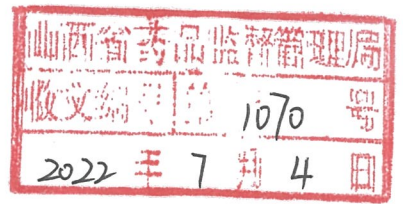 山西省药品监督管理局
收文编号第 1070 号
2022 年 7 月 4 日